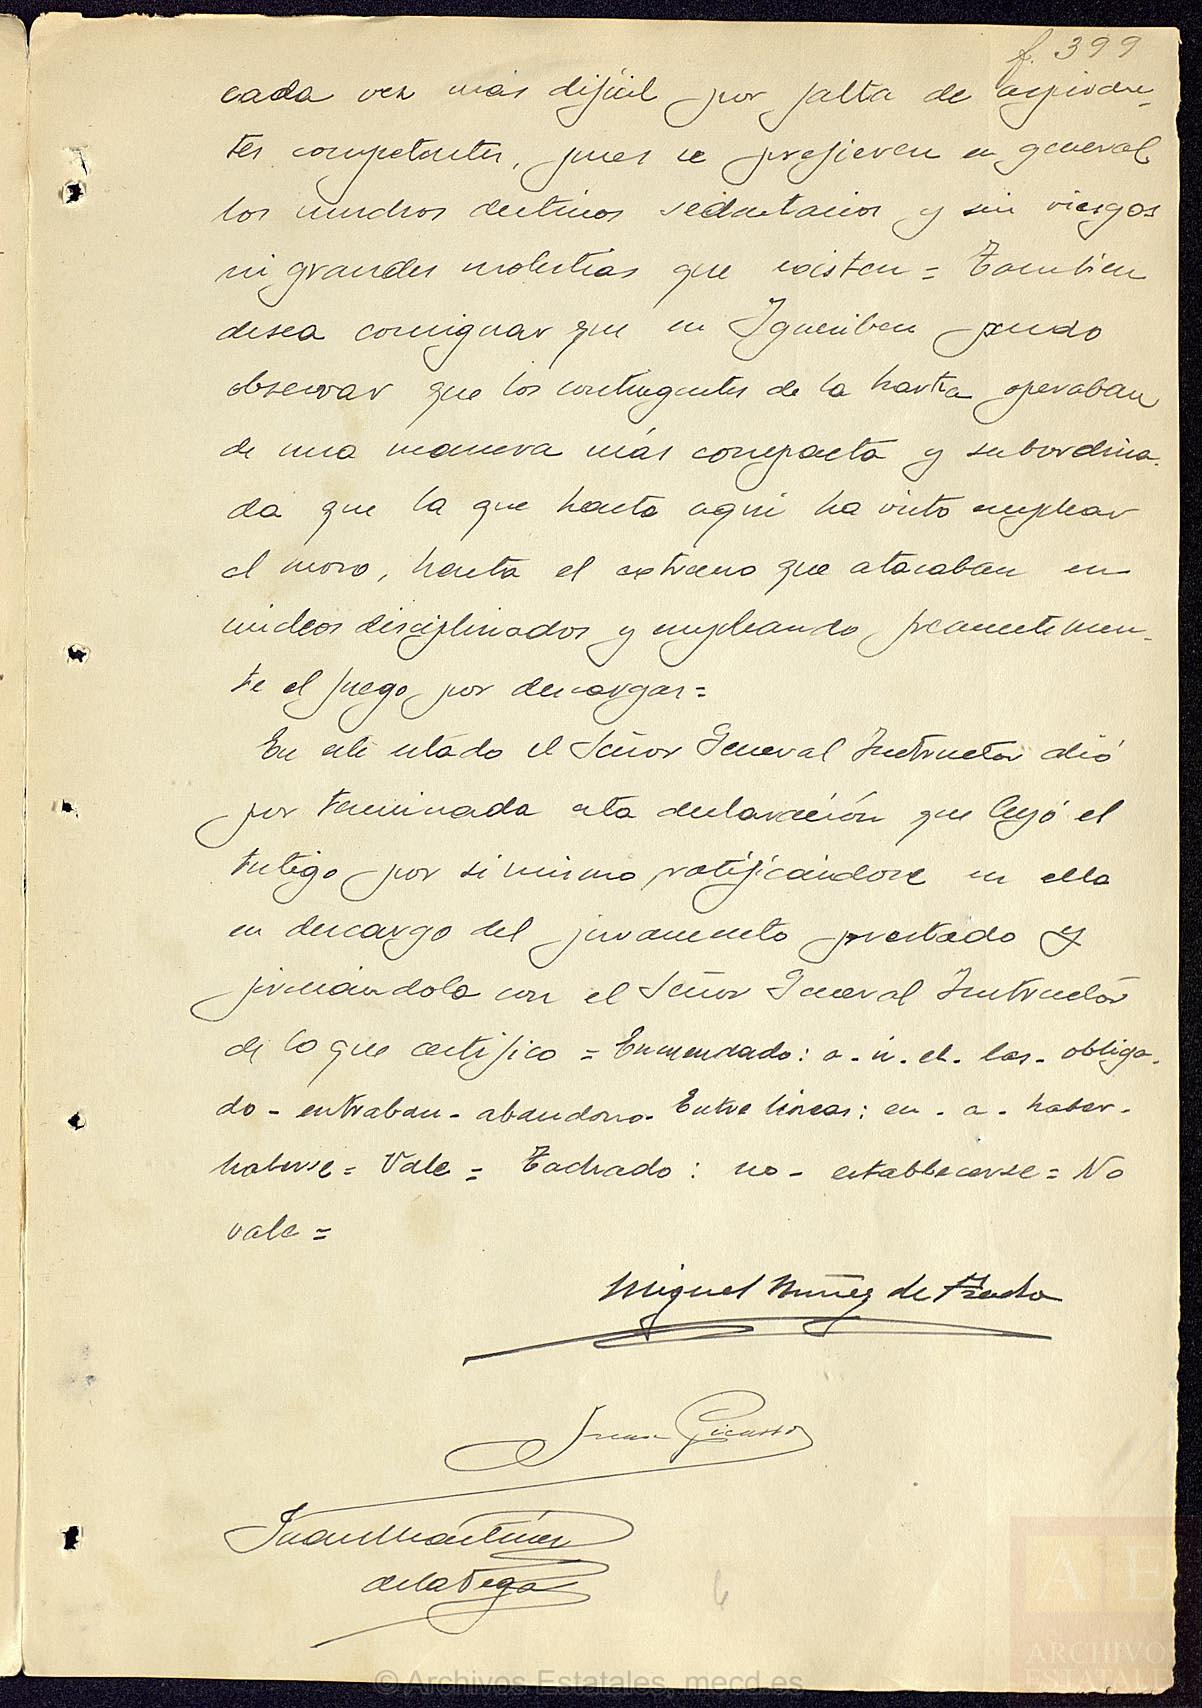 f. 399
cada vez más difícil por falta de aspiran-
tes competentes, pues se prefieren en general
los muchos destinos sedentarios y sin riesgos
ni grandes molestias que existen = Tambien
desea consignar que en Igueriben pudo
observar que los contingentes de la harka operaban
de una manera más compacta y subordina-
da que la que hasta aqui ha visto emplear
al moro, hasta el extremo que atacaban en
núcleos disciplinados y empleando frecuentemen-
te el fuego por descargas =
En este estado el Señor General Instructor dió
por terminada esta declaración que leyó el
testigo por si mismo ratificándose en ella
en descargo del juramento prestado y
firmándola con el Señor General Instructor
de lo que certifico = Enmendado: a - n - el - las - obliga-
do - entraban - abandono - Entre lineas: en - a - haber -
haberse = Vale = Tachado: no - establecerse = No
vale =
Miguel Nuñez de Prado
Juan Picasso
Juan Martínez
de la Vega
© Archivos Estatales, mecd.es
A E
ARCHIVO
ESTATAL